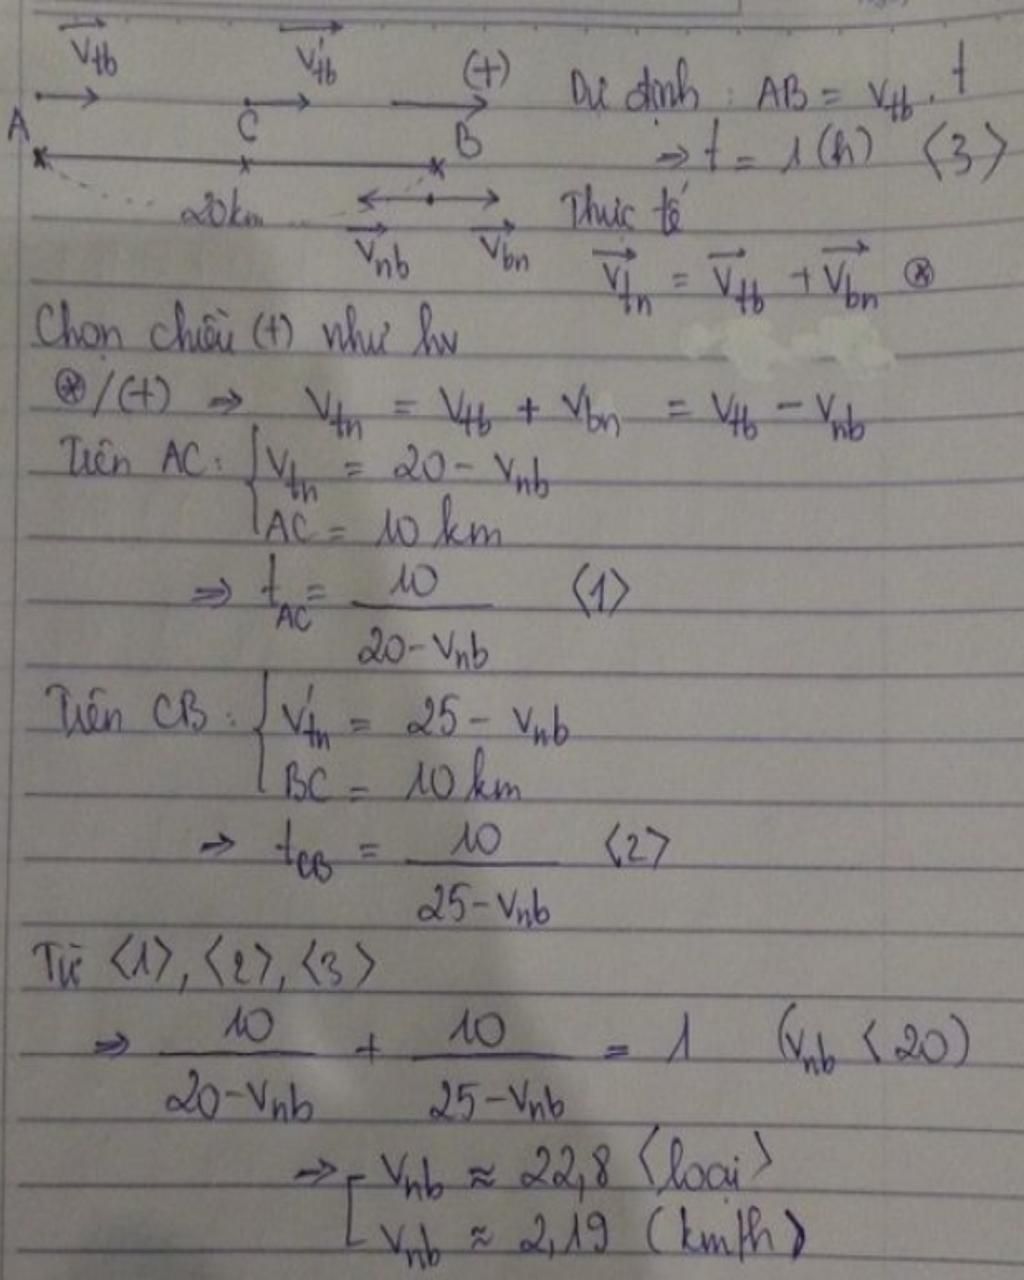 V⃗tb V⃗'tb (+) Dự định : AB = Vtb . t
A C B ⇒ t = 1 (h) <3>
20km Thực tế
V⃗nb V⃗bn V⃗tn = V⃗tb + V⃗bn ⊛
Chọn chiều (+) như hv
⊛/(+) ⇒ Vtn = Vtb + Vbn = Vtb - Vnb
Trên AC: { Vtn = 20 - Vnb
AC = 10 km
⇒ tAC = 10 / (20 - Vnb) <1>
Trên CB : { V'tn = 25 - Vnb
BC = 10 km
→ tCB = 10 / (25 - Vnb) <2>
Từ <1>, <2>, <3>
⇒ 10 / (20 - Vnb) + 10 / (25 - Vnb) = 1 (Vnb < 20)
⇒ [ Vnb ≈ 22,8 <loại>
Vnb ≈ 2,19 (km/h)